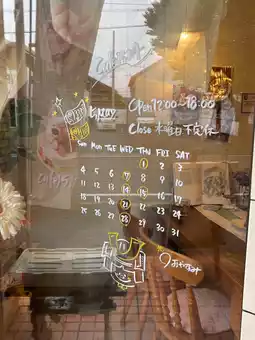 OPen 12:00~18:00
Close 木曜日 不定休
Sun Mon TUE WED THU FRI SAT
1 2 3
4 5 6 7 8 9 10
11 12 13 14 15 16 17
18 19 20 21 22 23 24
25 26 27 28 29 30 31
おやすみ